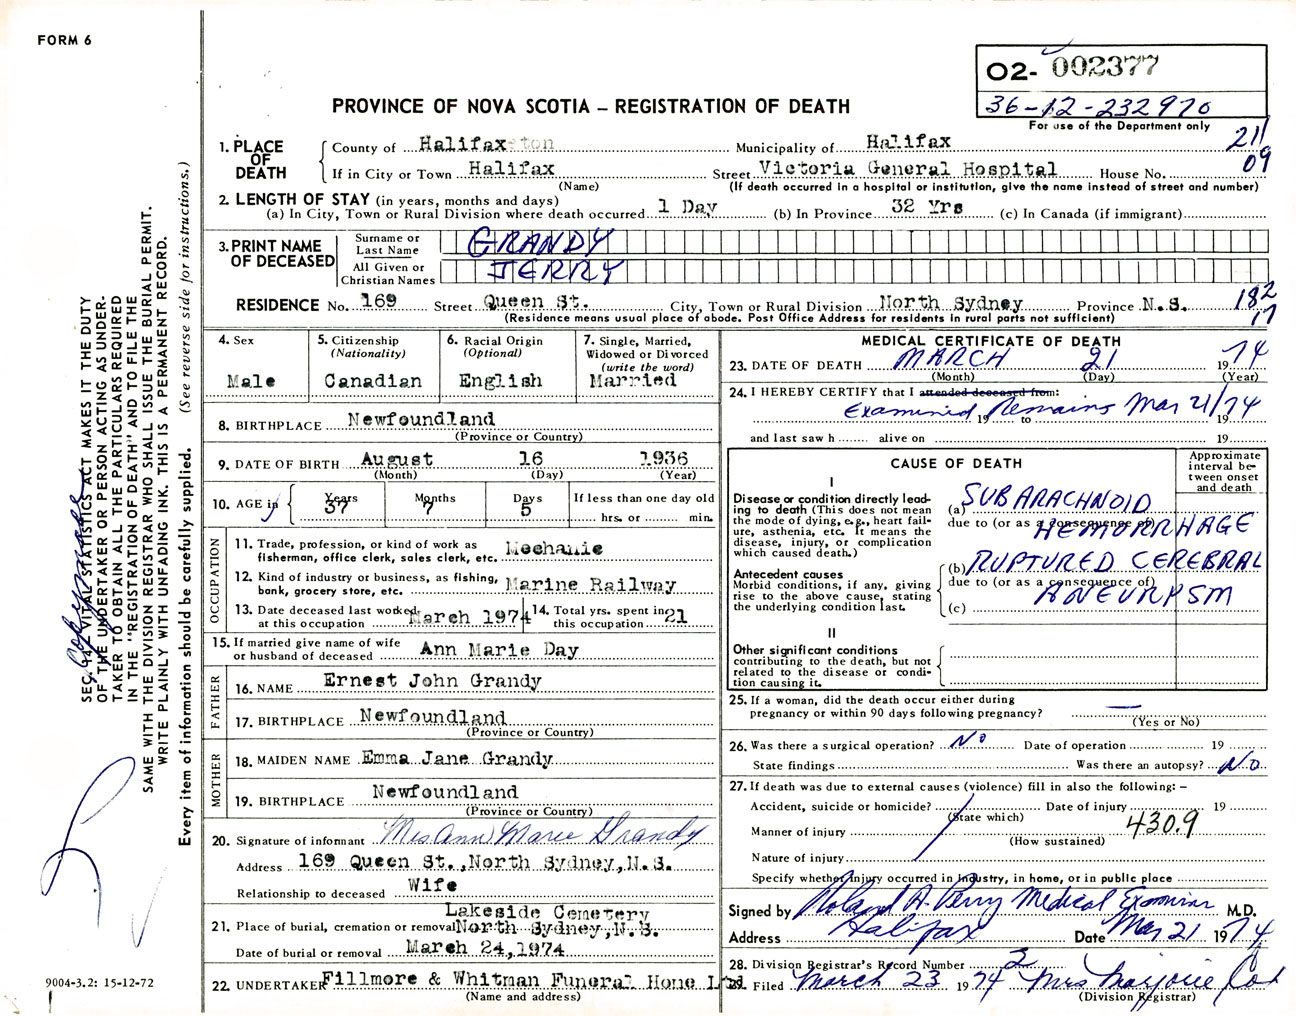 FORM 6
O2- 002377
36-12-232970
For use of the Department only
PROVINCE OF NOVA SCOTIA – REGISTRATION OF DEATH
211
09
1. PLACE OF DEATH
County of Halifax Municipality of Halifax
If in City or Town Halifax Street Victoria General Hospital House No.
(Name) (If death occurred in a hospital or institution, give the name instead of street and number)
2. LENGTH OF STAY (in years, months and days)
(a) In City, Town or Rural Division where death occurred 1 Day (b) In Province 32 Yrs (c) In Canada (if immigrant)
3. PRINT NAME OF DECEASED
Surname or Last Name GRANDY
All Given or Christian Names JERRY
RESIDENCE No. 169 Street Queen St. City, Town or Rural Division North Sydney Province N.S. 182
17
(Residence means usual place of abode. Post Office Address for residents in rural parts not sufficient)
4. Sex
Male
5. Citizenship
(Nationality)
Canadian
6. Racial Origin
(Optional)
English
7. Single, Married,
Widowed or Divorced
(write the word)
Married
8. BIRTHPLACE Newfoundland
(Province or Country)
9. DATE OF BIRTH August 16 1936
(Month) (Day) (Year)
10. AGE in
Years Months Days If less than one day old
37 7 5 hrs. or min.
OCCUPATION
11. Trade, profession, or kind of work as
fisherman, office clerk, sales clerk, etc. Mechanic
12. Kind of industry or business, as fishing,
bank, grocery store, etc. Marine Railway
13. Date deceased last worked
at this occupation March 1974
14. Total yrs. spent in
this occupation 21
15. If married give name of wife
or husband of deceased Ann Marie Day
FATHER
16. NAME Ernest John Grandy
17. BIRTHPLACE Newfoundland
(Province or Country)
MOTHER
18. MAIDEN NAME Emma Jane Grandy
19. BIRTHPLACE Newfoundland
(Province or Country)
20. Signature of informant Mrs Ann Marie Grandy
Address 169 Queen St.,North Sydney,N.S.
Relationship to deceased Wife
Lakeside Cemetery
21. Place of burial, cremation or removal North Sydney,N.S.
Date of burial or removal March 24,1974
22. UNDERTAKER Fillmore & Whitman Funeral Home Ltd.
(Name and address)
MEDICAL CERTIFICATE OF DEATH
23. DATE OF DEATH MARCH 21 1974
(Month) (Day) (Year)
24. I HEREBY CERTIFY that I attended deceased from:
Examined Remains Mar 21/74
19 to 19
and last saw h alive on 19
CAUSE OF DEATH
Approximate
interval be-
tween onset
and death
I
Disease or condition directly lead-
ing to death (This does not mean
the mode of dying, e.g., heart fail-
ure, asthenia, etc. It means the
disease, injury, or complication
which caused death.)
(a) SUBARACHNOID
due to (or as a consequence of)
HEMORRHAGE
Antecedent causes
Morbid conditions, if any, giving
rise to the above cause, stating
the underlying condition last.
(b) RUPTURED CEREBRAL
due to (or as a consequence of)
ANEURYSM
(c)
II
Other significant conditions
contributing to the death, but not
related to the disease or condi-
tion causing it.
25. If a woman, did the death occur either during
pregnancy or within 90 days following pregnancy? —
(Yes or No)
26. Was there a surgical operation? No Date of operation 19
State findings Was there an autopsy? No
27. If death was due to external causes (violence) fill in also the following: –
Accident, suicide or homicide? Date of injury 19
(State which)
Manner of injury 430.9
(How sustained)
Nature of injury
Specify whether injury occurred in industry, in home, or in public place
Signed by Roland A. Perry Medical Examiner M.D.
Address Halifax Date Mar 21 1974
28. Division Registrar's Record Number 2
29. Filed March 23 1974 Mrs Marjorie Cox
(Division Registrar)
SEC. 14, VITAL STATISTICS ACT MAKES IT THE DUTY
OF THE UNDERTAKER OR PERSON ACTING AS UNDER-
TAKER TO OBTAIN ALL THE PARTICULARS REQUIRED
IN THE "REGISTRATION OF DEATH" AND TO FILE THE
SAME WITH THE DIVISION REGISTRAR WHO SHALL ISSUE THE BURIAL PERMIT.
WRITE PLAINLY WITH UNFADING INK. THIS IS A PERMANENT RECORD.
Every item of information should be carefully supplied. (See reverse side for instructions.)
9004-3.2: 15-12-72